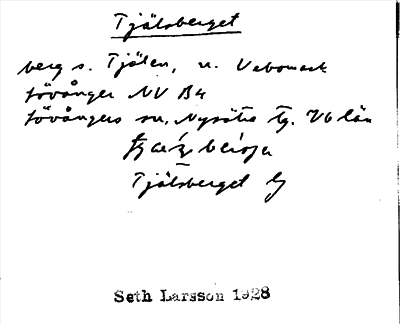 Tjälsberget
berg s. Tjälen, n. Vebomark
Lövånger NV B4
Lövångers sn, Nysätra tg. Vb län
Tjälsberget
Seth Larsson 1928